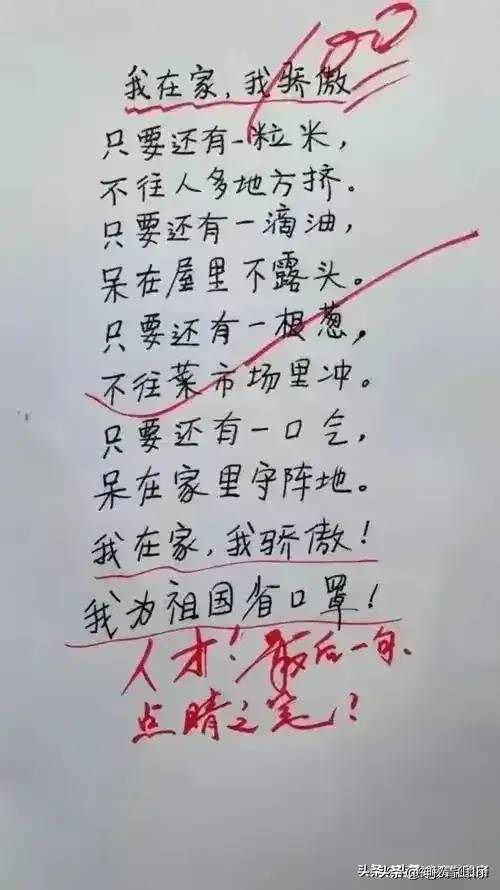 100
我在家，我骄傲
只要还有一粒米，
不往人多地方挤。
只要还有一滴油，
呆在屋里不露头。
只要还有一根葱，
不往菜市场里冲。
只要还有一口气，
呆在家里守阵地。
我在家，我骄傲！
我为祖国省口罩！
人才！最后一句、
点睛之笔！
头条